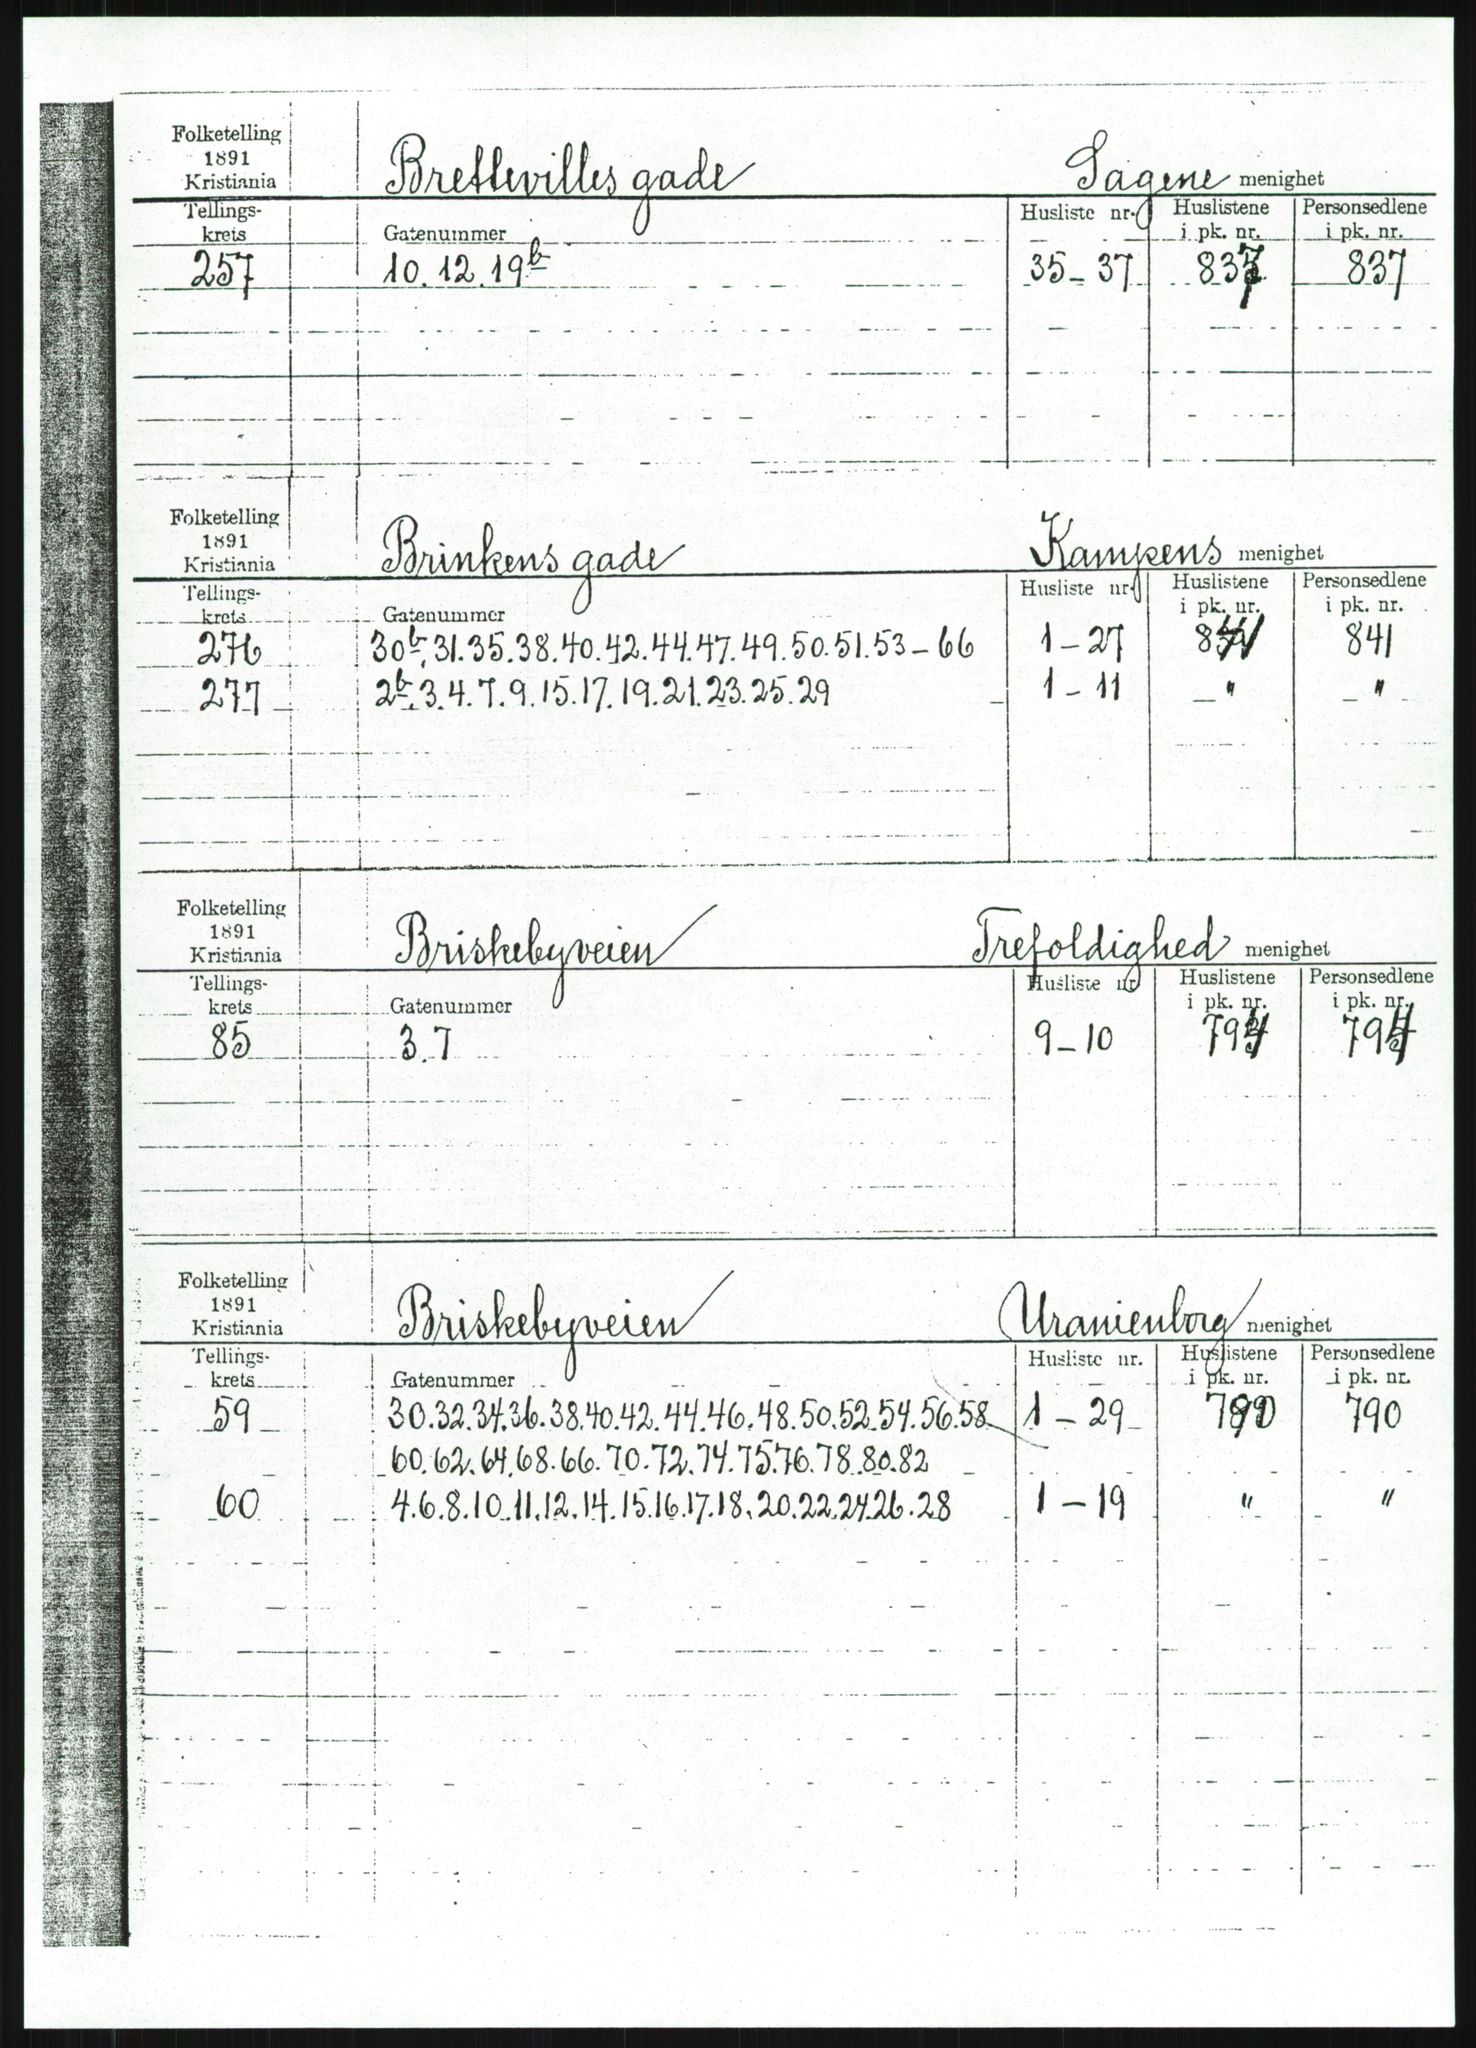 Folketelling
1891
Kristiania Brettevilles gade Sagene menighet
Tellings- Husliste nr. Huslistene Personsedlene
krets Gatenummer i pk. nr. i pk. nr.
257 10. 12. 19b 35-37 837 837
Folketelling
1891
Kristiania Brinkens gade Kampens menighet
Tellings- Husliste nr. Huslistene Personsedlene
krets Gatenummer i pk. nr. i pk. nr.
276 30b. 31. 35. 38. 40. 42. 44. 47. 49. 50. 51. 53-66 1-27 841 841
277 2b. 3. 4. 7. 9. 15. 17. 19. 21. 23. 25. 29 1-11 -"- -"
Folketelling
1891
Kristiania Briskebyveien Trefoldighed menighet
Tellings- Husliste nr. Huslistene Personsedlene
krets Gatenummer i pk. nr. i pk. nr.
85 3. 7 9-10 794 794
Folketelling
1891
Kristiania Briskebyveien Uranienborg menighet
Tellings- Husliste nr. Huslistene Personsedlene
krets Gatenummer i pk. nr. i pk. nr.
59 30. 32. 34. 36. 38. 40. 42. 44. 46. 48. 50. 52. 54. 56. 58 1-29 790 790
60. 62. 64. 68. 66. 70. 72. 74. 75. 76. 78. 80. 82
60 4. 6. 8. 10. 11. 12. 14. 15. 16. 17. 18. 20. 22. 24. 26. 28 1-19 " "